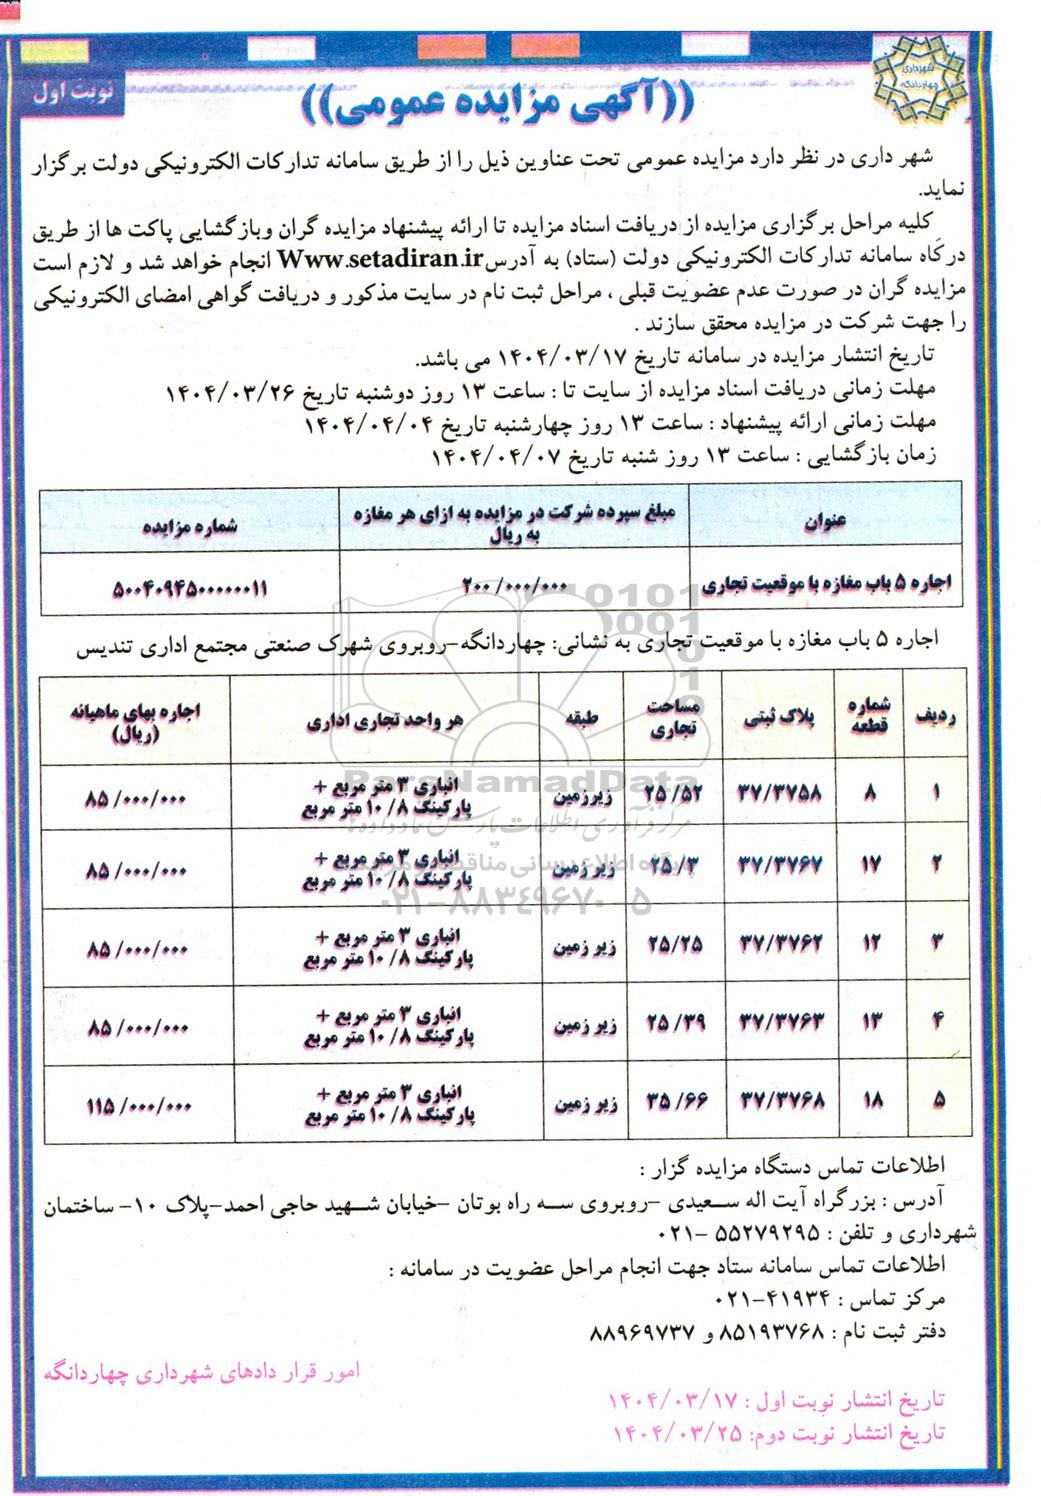 شهرداری
چهاردانگه
نوبت اول
((آگهی مزایده عمومی))
شهر داری در نظر دارد مزایده عمومی تحت عناوین ذیل را از طریق سامانه تدارکات الکترونیکی دولت برگزار
نماید.
کلیه مراحل برگزاری مزایده از دریافت اسناد مزایده تا ارائه پیشنهاد مزایده گران وبازگشایی پاکت ها از طریق
درگاه سامانه تدارکات الکترونیکی دولت (ستاد) به آدرس Www.setadiran.ir انجام خواهد شد و لازم است
مزایده گران در صورت عدم عضویت قبلی ، مراحل ثبت نام در سایت مذکور و دریافت گواهی امضای الکترونیکی
را جهت شرکت در مزایده محقق سازند .
تاریخ انتشار مزایده در سامانه تاریخ ۱۴۰۴/۰۳/۱۷ می باشد.
مهلت زمانی دریافت اسناد مزایده از سایت تا : ساعت ۱۳ روز دوشنبه تاریخ ۱۴۰۴/۰۳/۲۶
مهلت زمانی ارائه پیشنهاد : ساعت ۱۳ روز چهارشنبه تاریخ ۱۴۰۴/۰۴/۰۴
زمان بازگشایی : ساعت ۱۳ روز شنبه تاریخ ۱۴۰۴/۰۴/۰۷
عنوان | مبلغ سپرده شرکت در مزایده به ازای هر مغازه به ریال | شماره مزایده
اجاره ۵ باب مغازه با موقعیت تجاری | ۲۰۰/۰۰۰/۰۰۰ | ۵۰۰۴۰۹۴۵۰۰۰۰۰۰۱۱
اجاره ۵ باب مغازه با موقعیت تجاری به نشانی: چهاردانگه-روبروی شهرک صنعتی مجتمع اداری تندیس
ردیف | شماره قطعه | پلاک ثبتی | مساحت تجاری | طبقه | هر واحد تجاری اداری | اجاره بهای ماهیانه (ریال)
۱ | ۸ | ۳۷/۳۷۵۸ | ۲۵/۵۲ | زیرزمین | انباری ۳ متر مربع + پارکینگ ۱۰/۸ متر مربع | ۸۵/۰۰۰/۰۰۰
۲ | ۱۷ | ۳۷/۳۷۶۷ | ۲۵/۳ | زیر زمین | انباری ۳ متر مربع + پارکینگ ۱۰/۸ متر مربع | ۸۵/۰۰۰/۰۰۰
۳ | ۱۲ | ۳۷/۳۷۶۲ | ۲۵/۲۵ | زیر زمین | انباری ۳ متر مربع + پارکینگ ۱۰/۸ متر مربع | ۸۵/۰۰۰/۰۰۰
۴ | ۱۳ | ۳۷/۳۷۶۳ | ۲۵/۳۹ | زیر زمین | انباری ۳ متر مربع + پارکینگ ۱۰/۸ متر مربع | ۸۵/۰۰۰/۰۰۰
۵ | ۱۸ | ۳۷/۳۷۶۸ | ۳۵/۶۶ | زیر زمین | انباری ۳ متر مربع + پارکینگ ۱۰/۸ متر مربع | ۱۱۵/۰۰۰/۰۰۰
ParsNamadData
۰۲۱-۸۸۳۴۹۶۷۰-۵
اطلاعات تماس دستگاه مزایده گزار :
آدرس : بزرگراه آیت اله سعیدی -روبروی سه راه بوتان -خیابان شهید حاجی احمد-پلاک ۱۰- ساختمان
شهرداری و تلفن : ۵۵۲۷۹۲۹۵ -۰۲۱
اطلاعات تماس سامانه ستاد جهت انجام مراحل عضویت در سامانه :
مرکز تماس : ۴۱۹۳۴-۰۲۱
دفتر ثبت نام : ۸۵۱۹۳۷۶۸ و ۸۸۹۶۹۷۳۷
امور قرار دادهای شهرداری چهاردانگه
تاریخ انتشار نوبت اول : ۱۴۰۴/۰۳/۱۷
تاریخ انتشار نوبت دوم: ۱۴۰۴/۰۳/۲۵